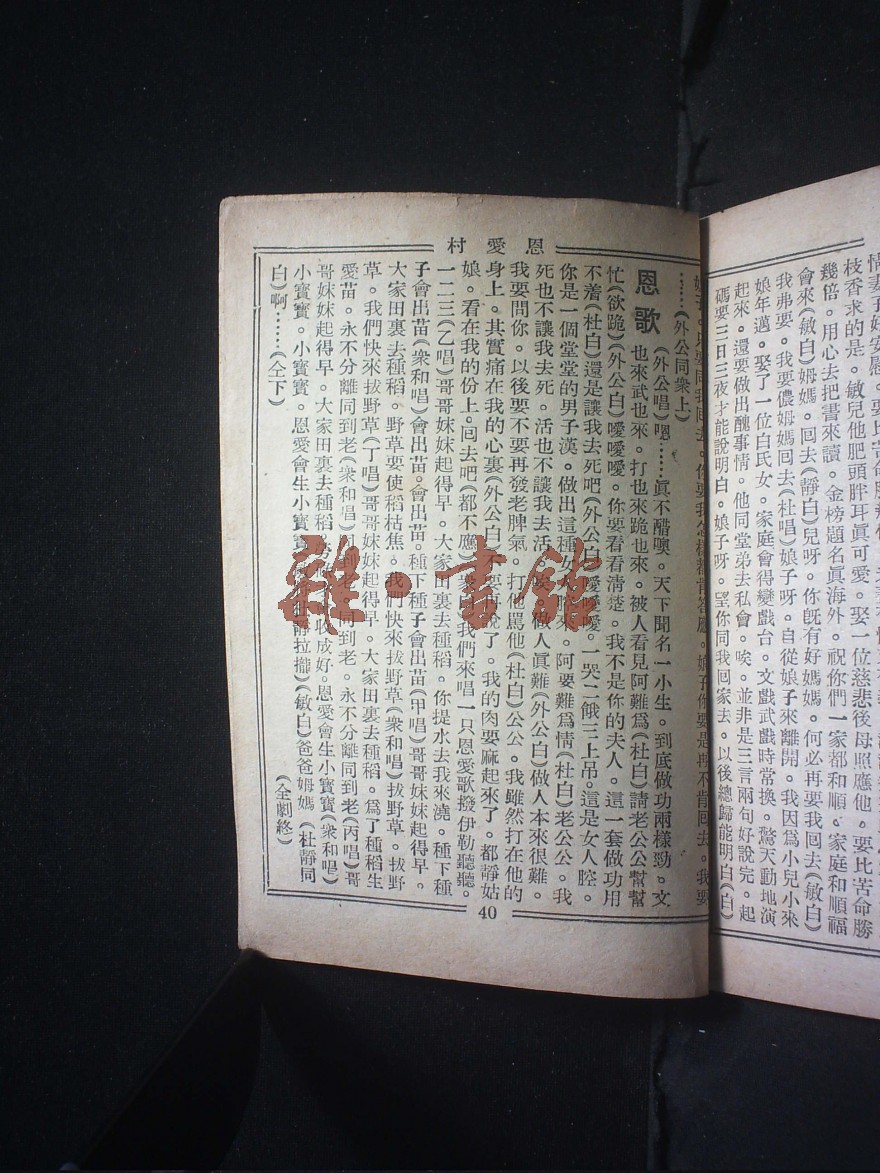 情
枝香求的是。敏兒他肥頭胖耳眞可愛。娶一位慈悲後母照應他。要比苦命勝
幾倍。用心去把書來讀。金榜題名眞海外。祝你們一家都和順。家庭和順福
會來(敏白)姆媽。回去(靜白)兒呀。你旣有好媽媽。何必再要我回去(敏白)
我弗要。我要儂姆媽回去(杜唱)娘子呀。自從娘子來離開。我因爲小兒小來
娘年邁。娶了一位白氏女。家庭會得變戲台。文戲武戲時常換。驚天動地演
起來。還要做出醜事情。他同堂弟去私會。唉。並非是三言兩句好說完。起
碼要三日三夜才能說明白。娘子呀。望你同我回家去。以後總歸能明白(白)
恩愛村
……(外公同衆上)
恩歌
(外公唱)嗯……眞不醋噢。天下聞名一小生。到底做功兩樣勁。文
也來武也來。打也來跪也來。被人看見阿難爲(杜白)請老公公幫幫
忙(欲跪)(外公白)噯噯噯。你要看看淸楚。我不是你的夫人。這一套做功用
不着(杜白)還是讓我去死吧(外公白)噯噯噯。一哭二餓三上吊。這是女人腔。
你是一個堂堂的男子漢。做出這種女人腔來。阿要難爲情(杜白)老公公。我
死也不讓我去死。活也不讓我去活。唉。做人眞難(外公白)做人本來很難。
我要問你。以後要不要再發老脾氣。打他罵他(杜白)公公。我雖然打在他的
身上。其實痛在我的心裏(外公白)不要再說了。我的肉要麻起來了。都靜姑
娘。看在我的份上。回去吧(都不應)衆 我們來唱一只恩愛歌撥伊勒聽聽。
一二三(乙唱)哥哥妹妹起得早。大家田裏去種稻。你提水去我來澆。種下種
子會出苗(衆和唱)會出苗。會出苗。種下種子會出苗(甲唱)哥哥妹妹起得早。
大家田裏去種稻。野草要使稻枯焦。我們快來拔野草(衆和唱)拔野草。拔野
草。我們快來拔野草(丁唱)哥哥妹妹起得早。大家田裏去種稻。爲了種稻生
愛苗。永不分離同到老(衆和唱)同到老。同到老。永不分離同到老(丙唱)哥
哥妹妹起得早。大家田裏去種稻。 收成好。恩愛會生小寶寶(衆和唱)
小寶寶。小寶寶。恩愛會生小寶寶 靜拉攏)(敏白)爸爸姆媽 (杜靜同
白)啊……(仝下)
(全劇終)
40
雜·書館